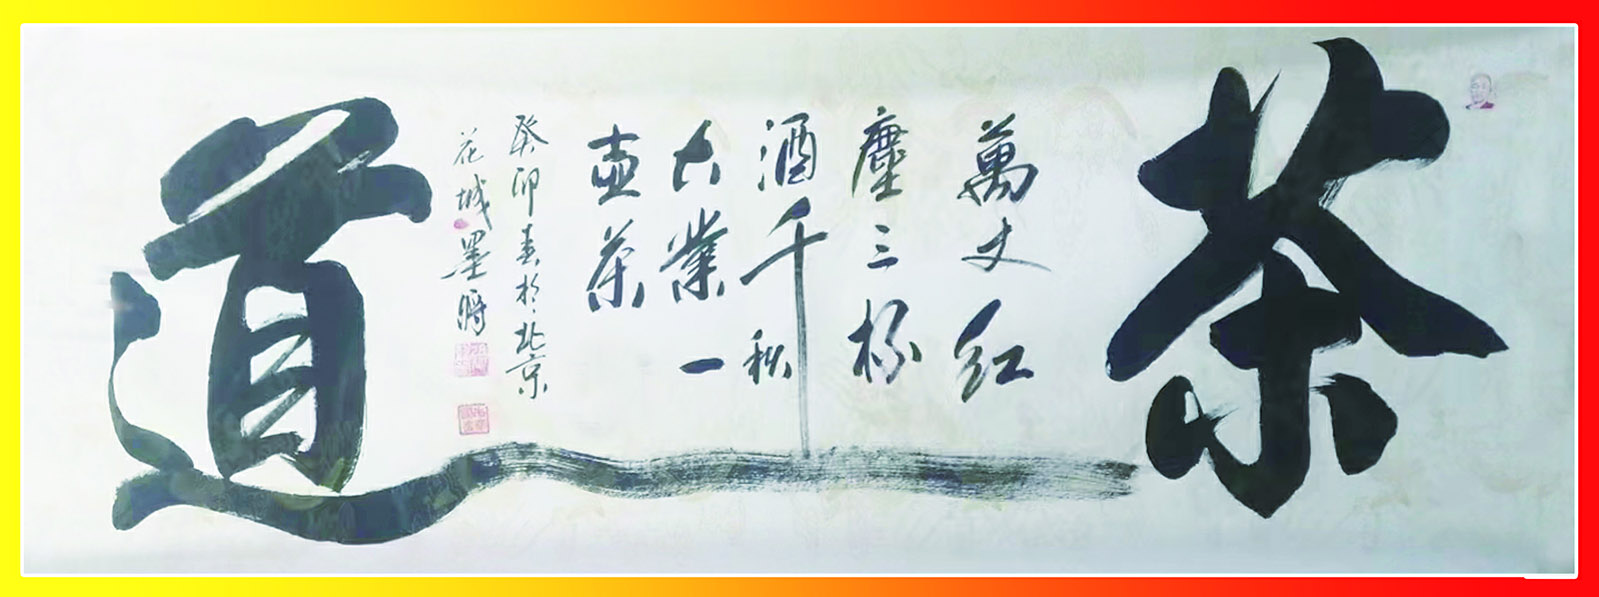 茶
萬丈红
塵三杯
酒千秋
大業一
壶茶
癸卯春於北京
花城墨
道